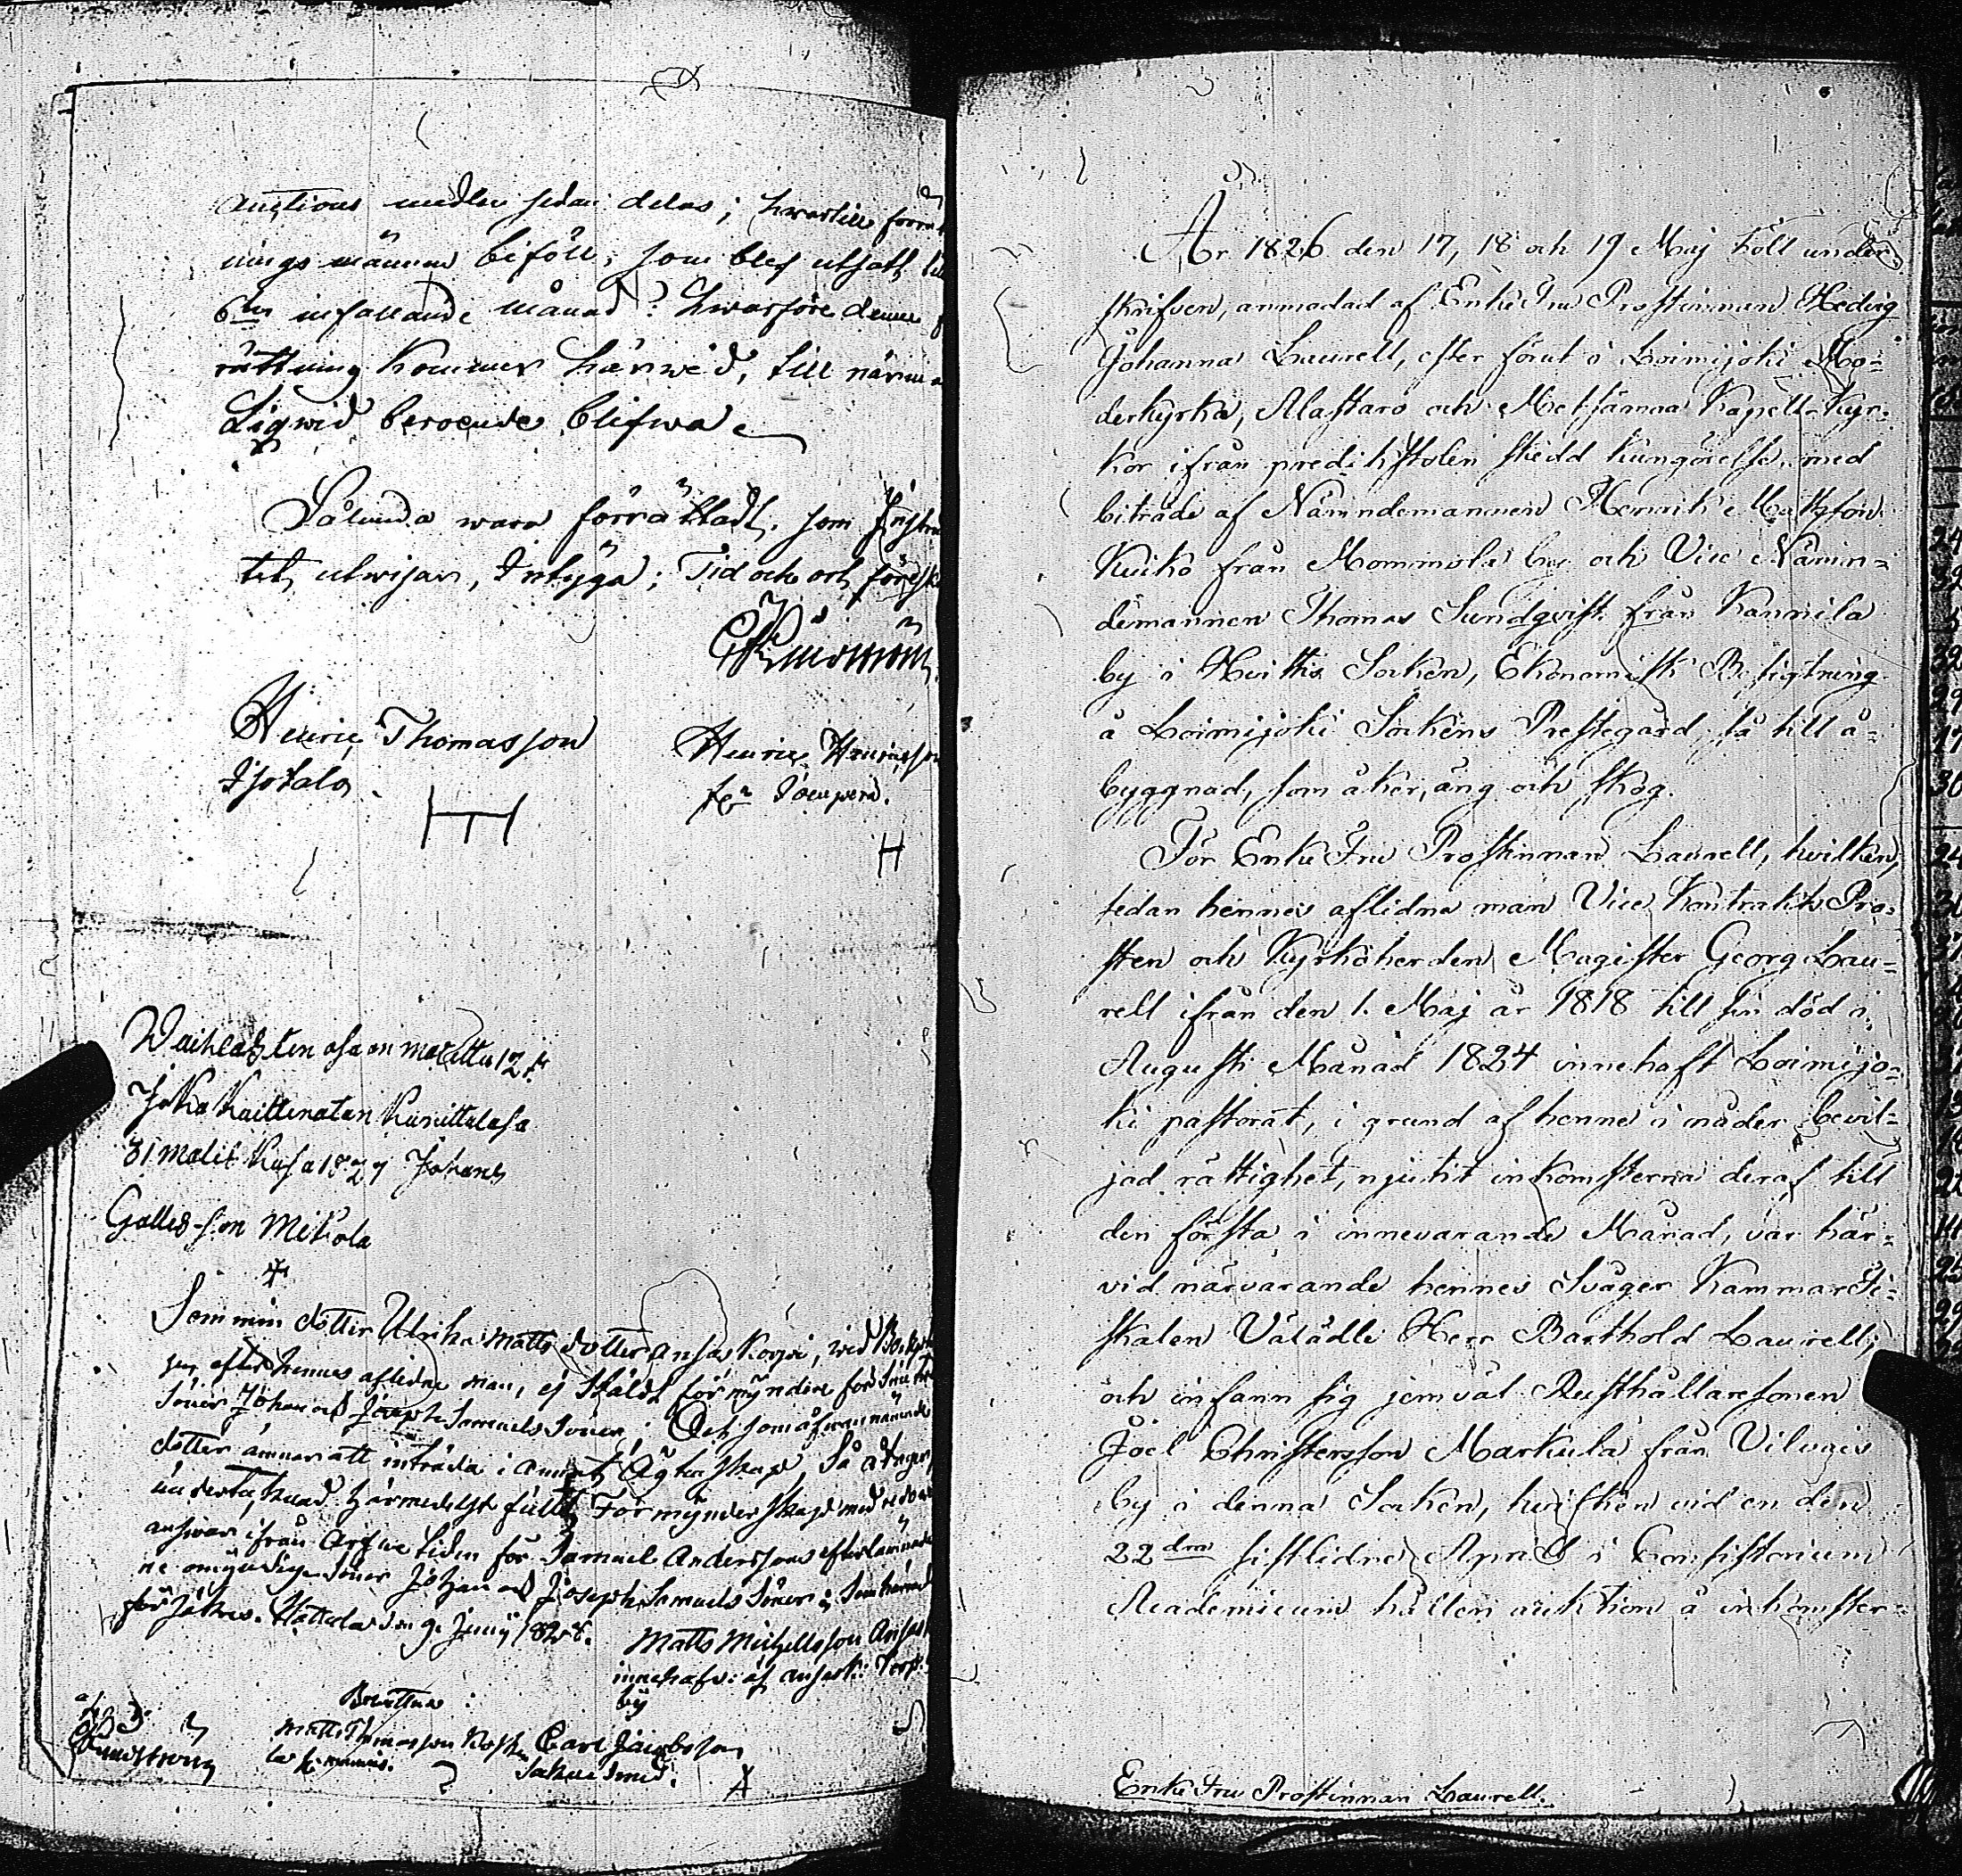 Auctions medlen sedan delas; hwartill förrätt
nings männen biföll, som blef utsatt till
6te infallande månad: hwarföre denne f
rättning kommer härwid, till närma
Ligwid beroende blifwa.
Sålunda wara förrättadt, som Instru
tet utwisar, Intyga; Tid och ort föresk
Henric Thomasson
Isotalo
Henric Henricsson
H
Joka kaittenatan kunittelasa
31 Malis kusa 1827 Johans
Galles-son Mikola
Som min dotter Ulrika Matts dotter Ansas Korpi, wid Bo
jen efter hennes aflidne man, ej stäldt förmyndare för sine twå
Söner Johan och Joseph Samuels Söner; Och som åfwannämnde
dotter ämnar att inträda i annat Ägtaskap, Så
undertecknad härmedelst fullt Förmynderskap med redo
answar ifrån Arfwe tiden för Samuel Anderssons efterlämnade
ne omyndige Söner Johan och Joseph Samuels Söner; Som härmed
försäkras. Hattula den 9. Junij 1828.
Matts Michellsson Ansas
innehafw: af Ansas k: Torp.
by
Bewittna:
Matts Thomasson
Carl Jacobsson
A
År 1826 den 17, 18 och 19 Maj höll under-
skrifven, anmodad af Enke Fru Prostinnan Hedvig
Johanna Laurell, efter förut i Loimijoki Mo-
derkyrka, Alastaro och Metsämaa Kapell-Kyr-
kor ifrån predikstolen skedd kungörelse, med
biträde af Nämndemannen Henrik Mattsson
Kuiko från Mommola by och Vice Nämn-
demannen Thomas Sundqvist från Kannila
by i Huittis Socken, Ekonomisk Besigtning
å Loimijoki Sockens Prestegård, så till å-
byggnad, som åker, äng och skog.
För Enke Fru Prostinnan Laurell, hvilken,
sedan hennes aflidne man Vice Kontrakts Pro-
sten och Kyrkoherden Magister Georg Lau-
rell ifrån den 1. Maj år 1818 till sin död i
Augusti Månad 1824 innehaft Loimijo-
ki pastorat, i grund af henne i nåder bevil-
jad rättighet, njutit inkomsterna deraf till
den första i innevarande Månad, var här-
vid närvarande hennes Svåger Kammar Fi-
skalen Välädle Herr Barthold Laurell,
och infann sig jemväl Rusthållaresonen
Joel Christersson Markula från Vilvais
by i denna Socken, hvilken vid en den
22dra sistlidne April i Consistorium
Academicum hållen auktion å inkomster-
Enke Fru Prostinnan Laurell.